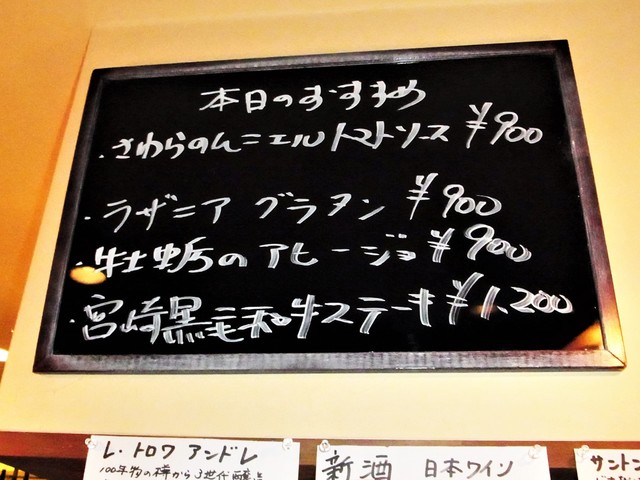 本日のおすすめ
・さわらのムニエル トマトソース ¥900
・ラザニア グラタン ¥900
・牡蛎のアヒージョ ¥900
・宮崎黒毛和牛ステーキ ¥1,200
レ・トロワ アンドレ
100年物の樽から3世代
新酒 日本ワイン
サントン